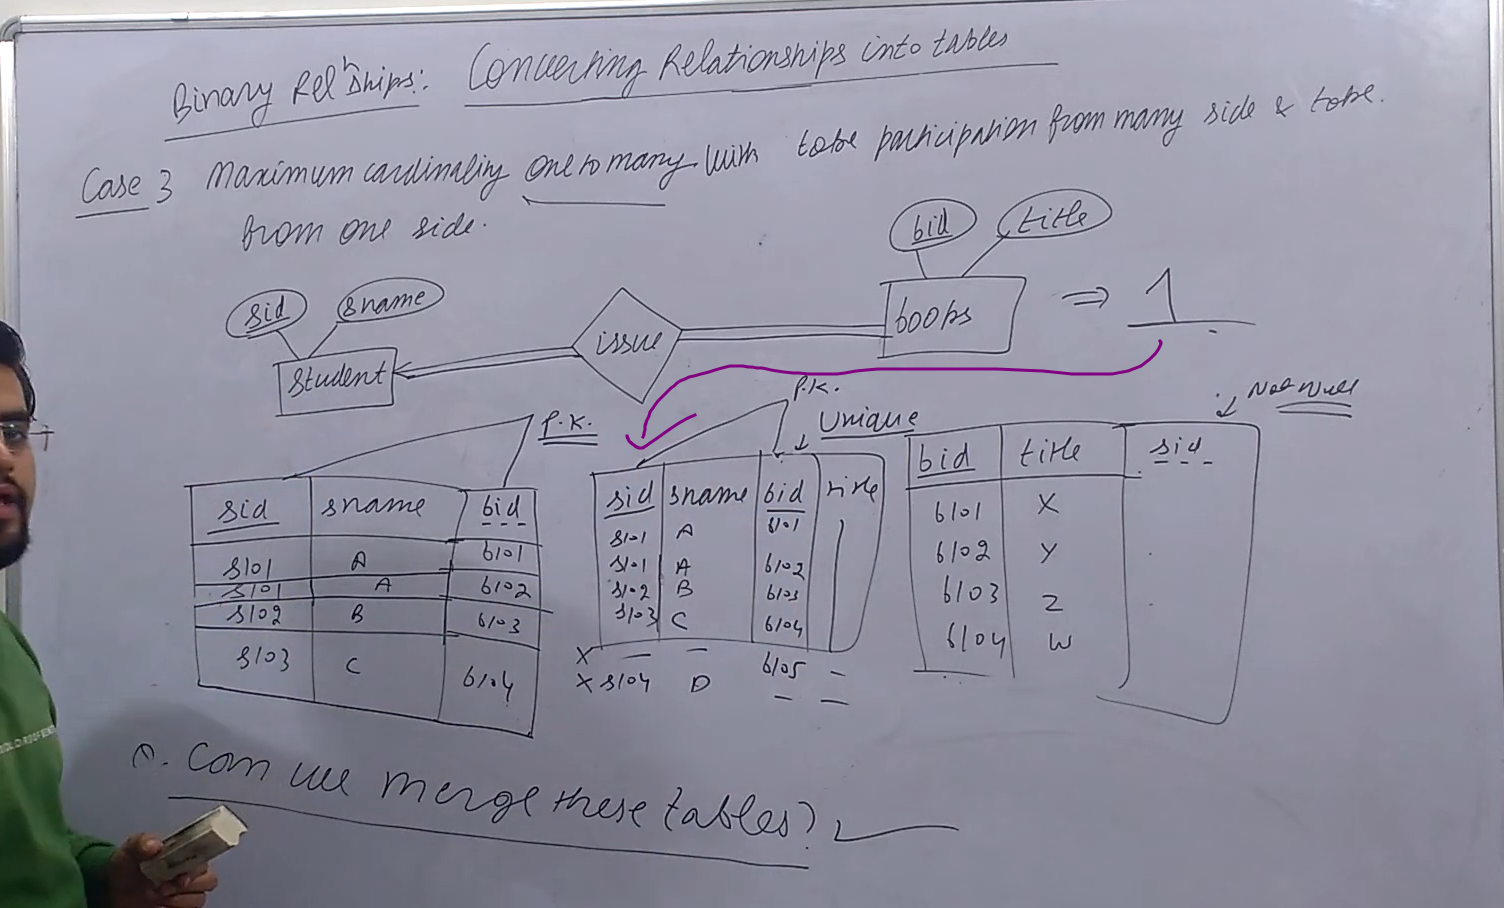 Binary Relnships: Converting Relationships into tables
Case 3 Maximum cardinality one to many with total participation from many side & total
from one side.
bid title
sid sname
student issue books ⇒ 1
P.K. P.K. Unique Not Null
sid sname bid
s101 A b101
s101 A b102
s102 B b103
s103 C b104
sid sname bid title
s101 A b101
s101 A b102
s102 B b103
s103 C b104
X — — b105 —
X s104 D — —
bid title sid
b101 X
b102 Y
b103 Z
b104 W
Q. Can we merge these tables?